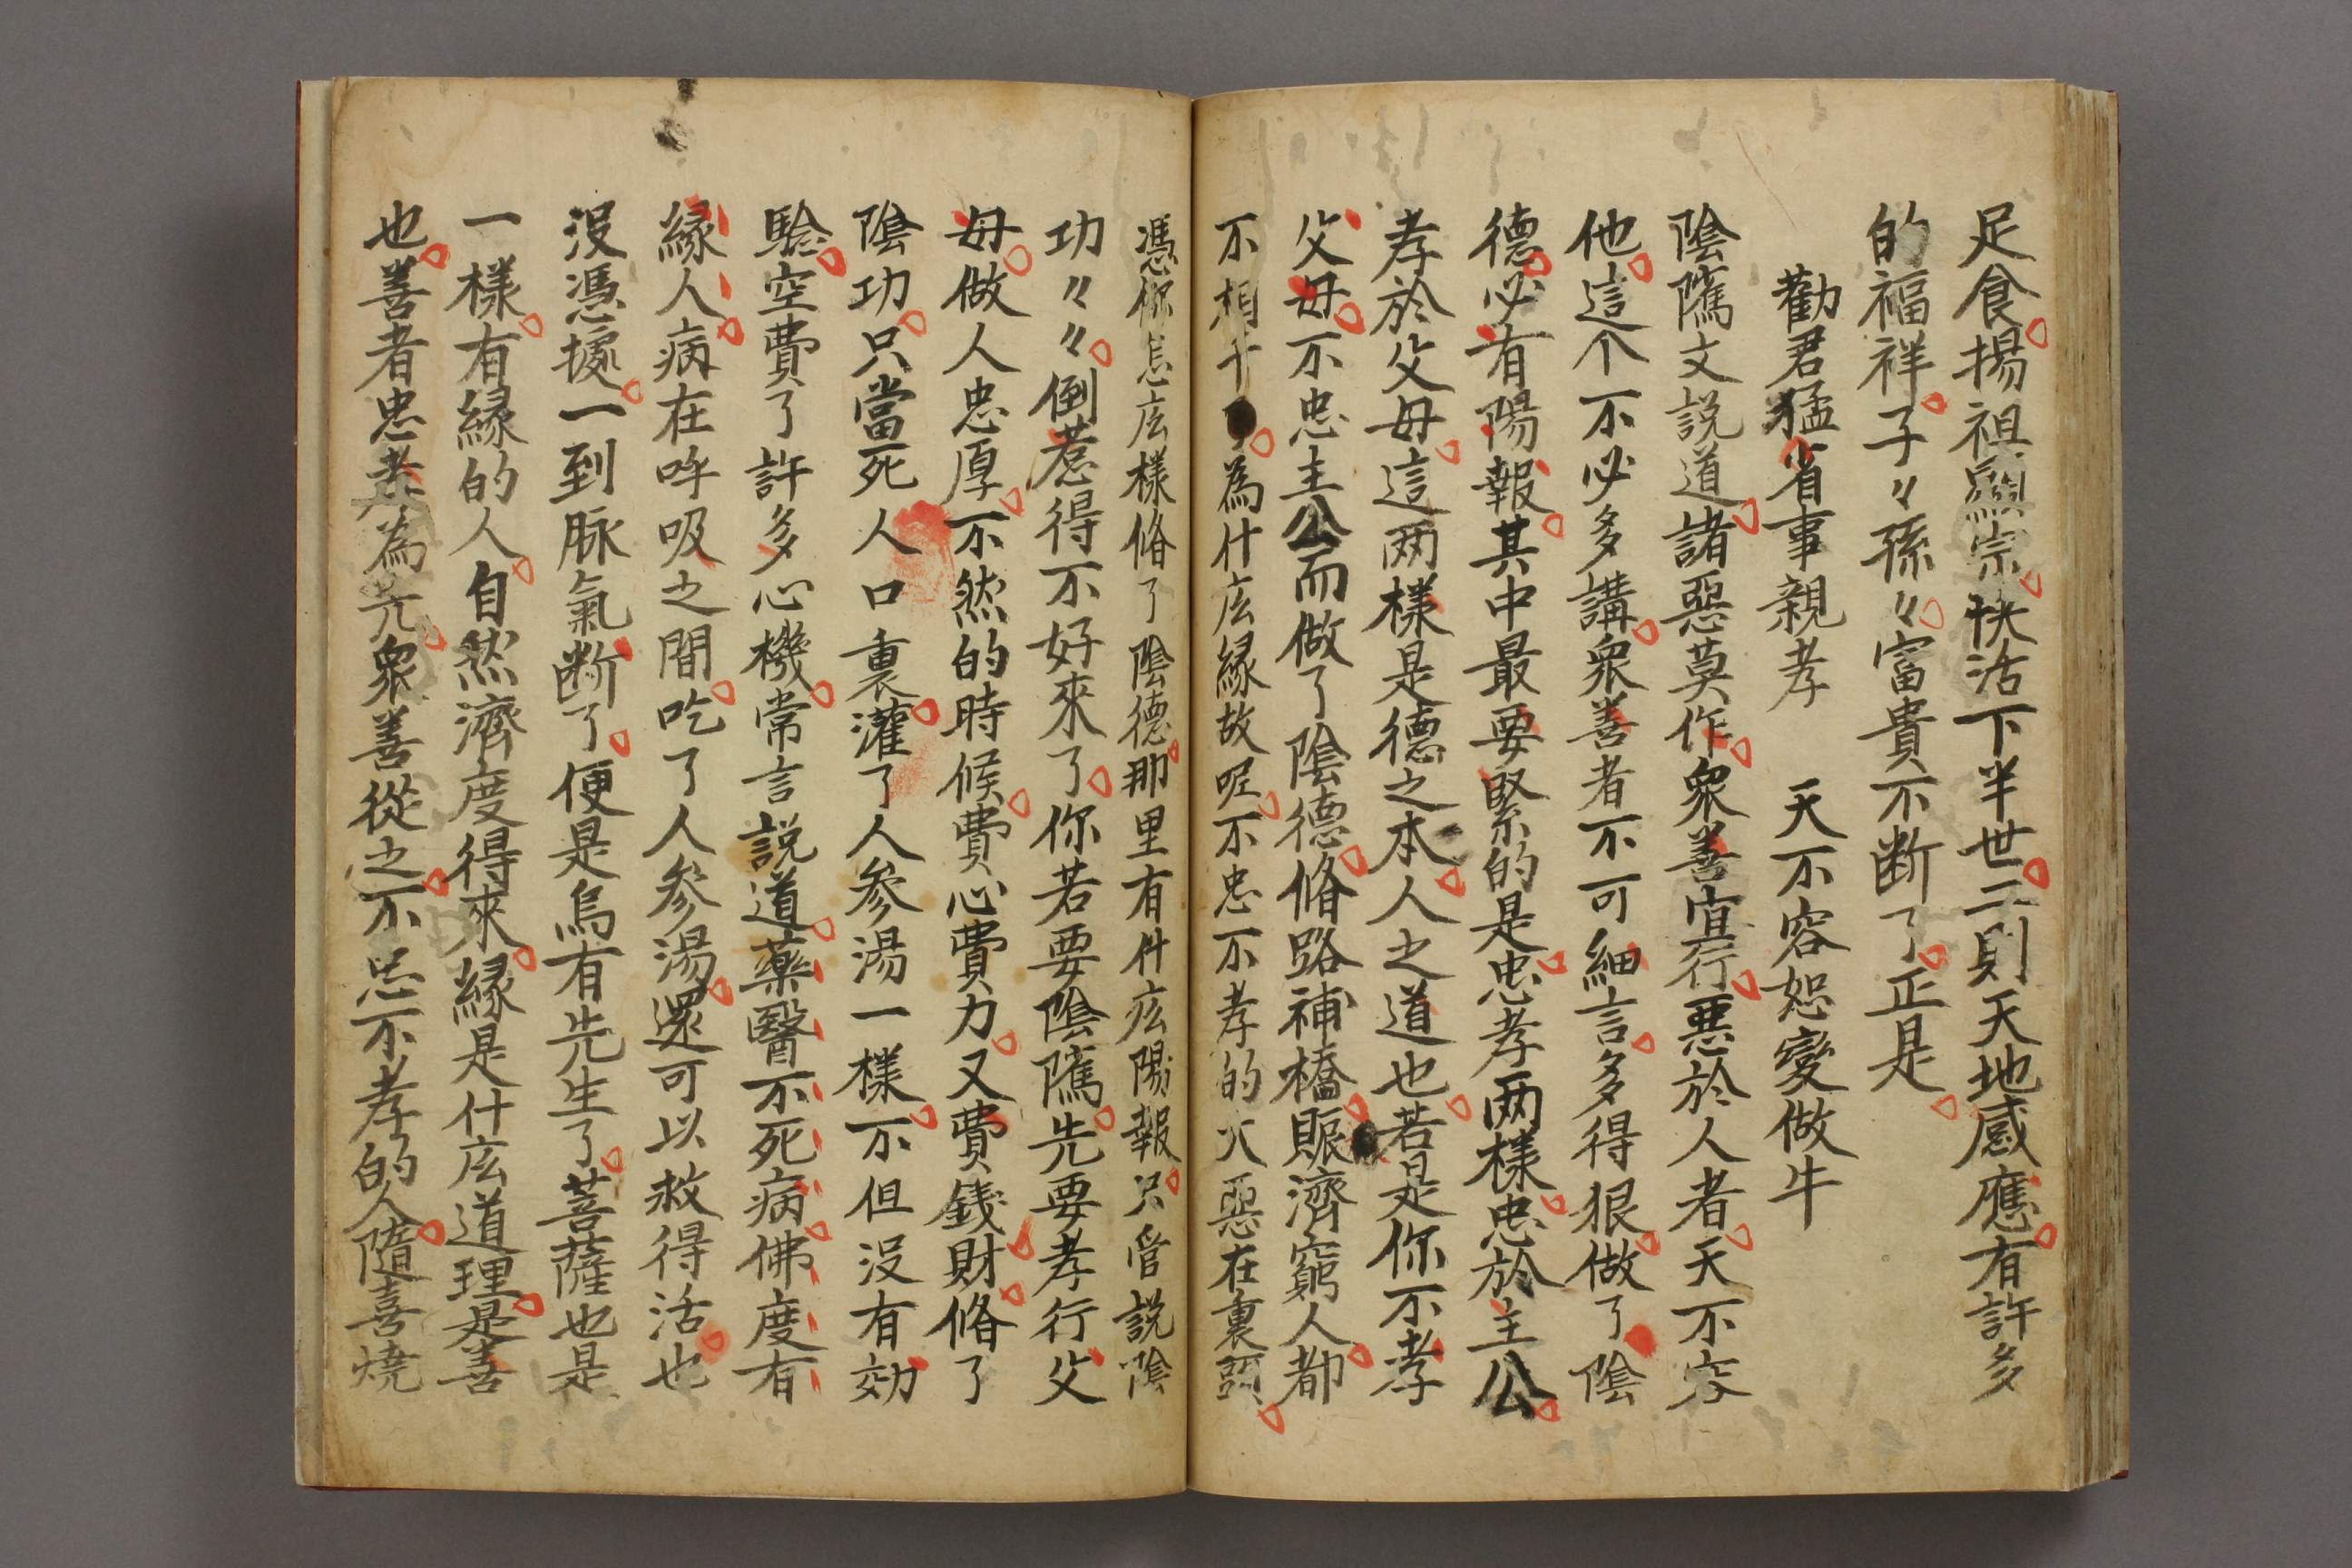 足食揚祖顯宗快活下半世二則天地感應有許多
的福祥子〻孫〻富貴不断了正是
勸君猛省事親孝　天不容恕變做牛
陰隲文説道諸惡莫作衆善宜行惡於人者天不容
他這个不必多講衆善者不可細言多得狠做了陰
德必有陽報其中最要緊的是忠孝两樣忠於主公
孝於父母這两樣是德之本人之道也若是你不孝
父母不忠主公而做了陰德脩路補橋賑濟窮人都
不相干為什庅縁故呢不忠不孝的大惡在裏頭
憑你怎庅樣脩了陰德那里有什庅陽報只管説陰
功〻〻倒惹得不好來了你若要陰隲先要孝行父
母做人忠厚不然的時候費心費力又費錢財脩了
陰功只當死人口裏灌了人參湯一樣不但沒有効
驗空費了許多心機常言説道藥醫不死病佛度有
縁人病在呼吸之間吃了人參湯還可以救得活也
沒憑據一到脉氣断了便是烏有先生了菩薩也是
一樣有縁的人自然濟度得來縁是什庅道理是善
也善者忠孝為先衆善從之不忠不孝的人隨喜燒